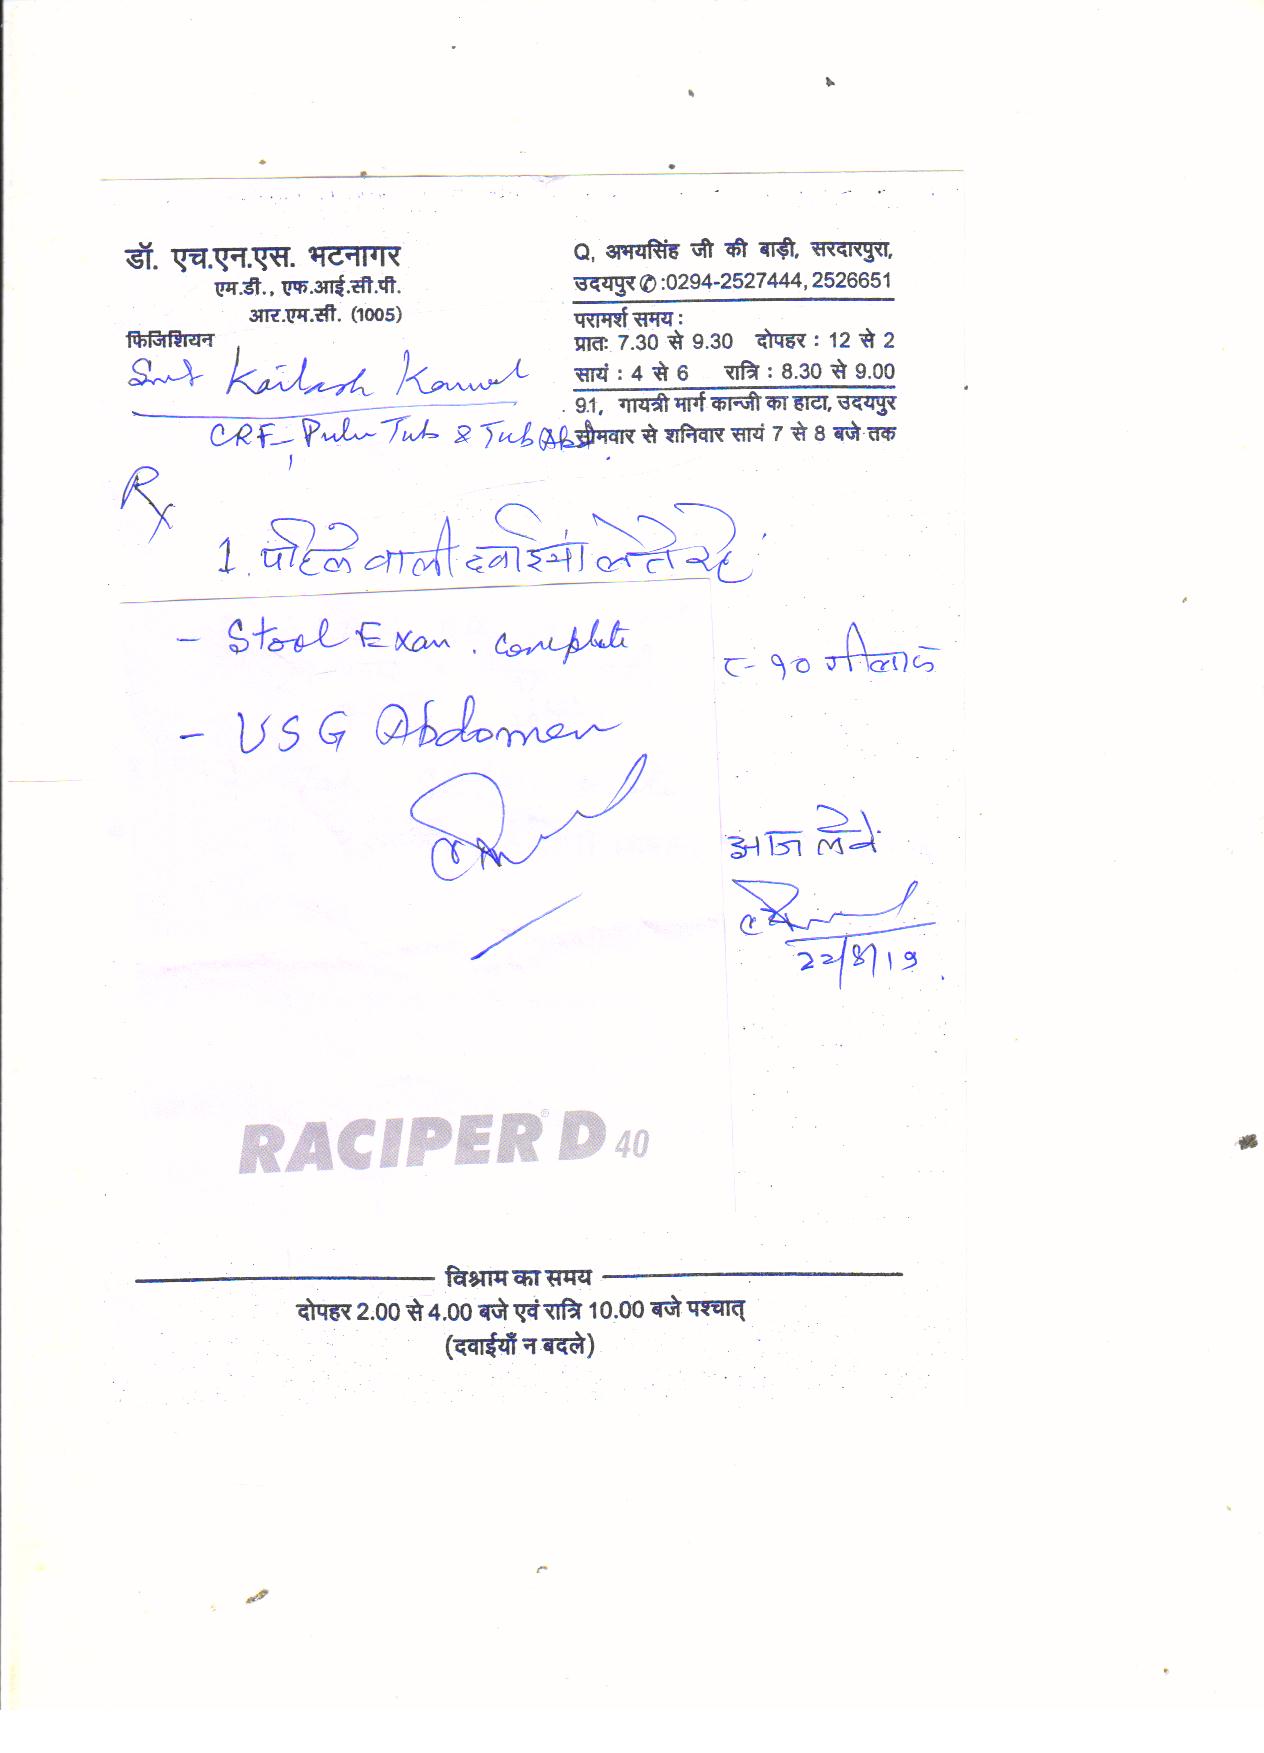 डॉ. एच.एन.एस. भटनागर
एम.डी., एफ.आई.सी.पी.
आर.एम.सी. (1005)
फिजिशियन
Q, अभयसिंह जी की बाड़ी, सरदारपुरा,
उदयपुर ✆:0294-2527444, 2526651
परामर्श समय :
प्रातः 7.30 से 9.30 दोपहर : 12 से 2
सायं : 4 से 6 रात्रि : 8.30 से 9.00
91, गायत्री मार्ग कान्जी का हाटा, उदयपुर
सौमवार से शनिवार सायं 7 से 8 बजे तक
Smt Kailash Kanwal
CRF, Pulm Tub & Tub Abd
Rx
1. पहिले वाली दवाईयां लेते रहे
- Stool Exam. complete
- USG Abdomen
८-१० गीलास
आज लेवे
22/8/19
RACIPER® D 40
विश्राम का समय
दोपहर 2.00 से 4.00 बजे एवं रात्रि 10.00 बजे पश्चात्
(दवाईयाँ न बदले)